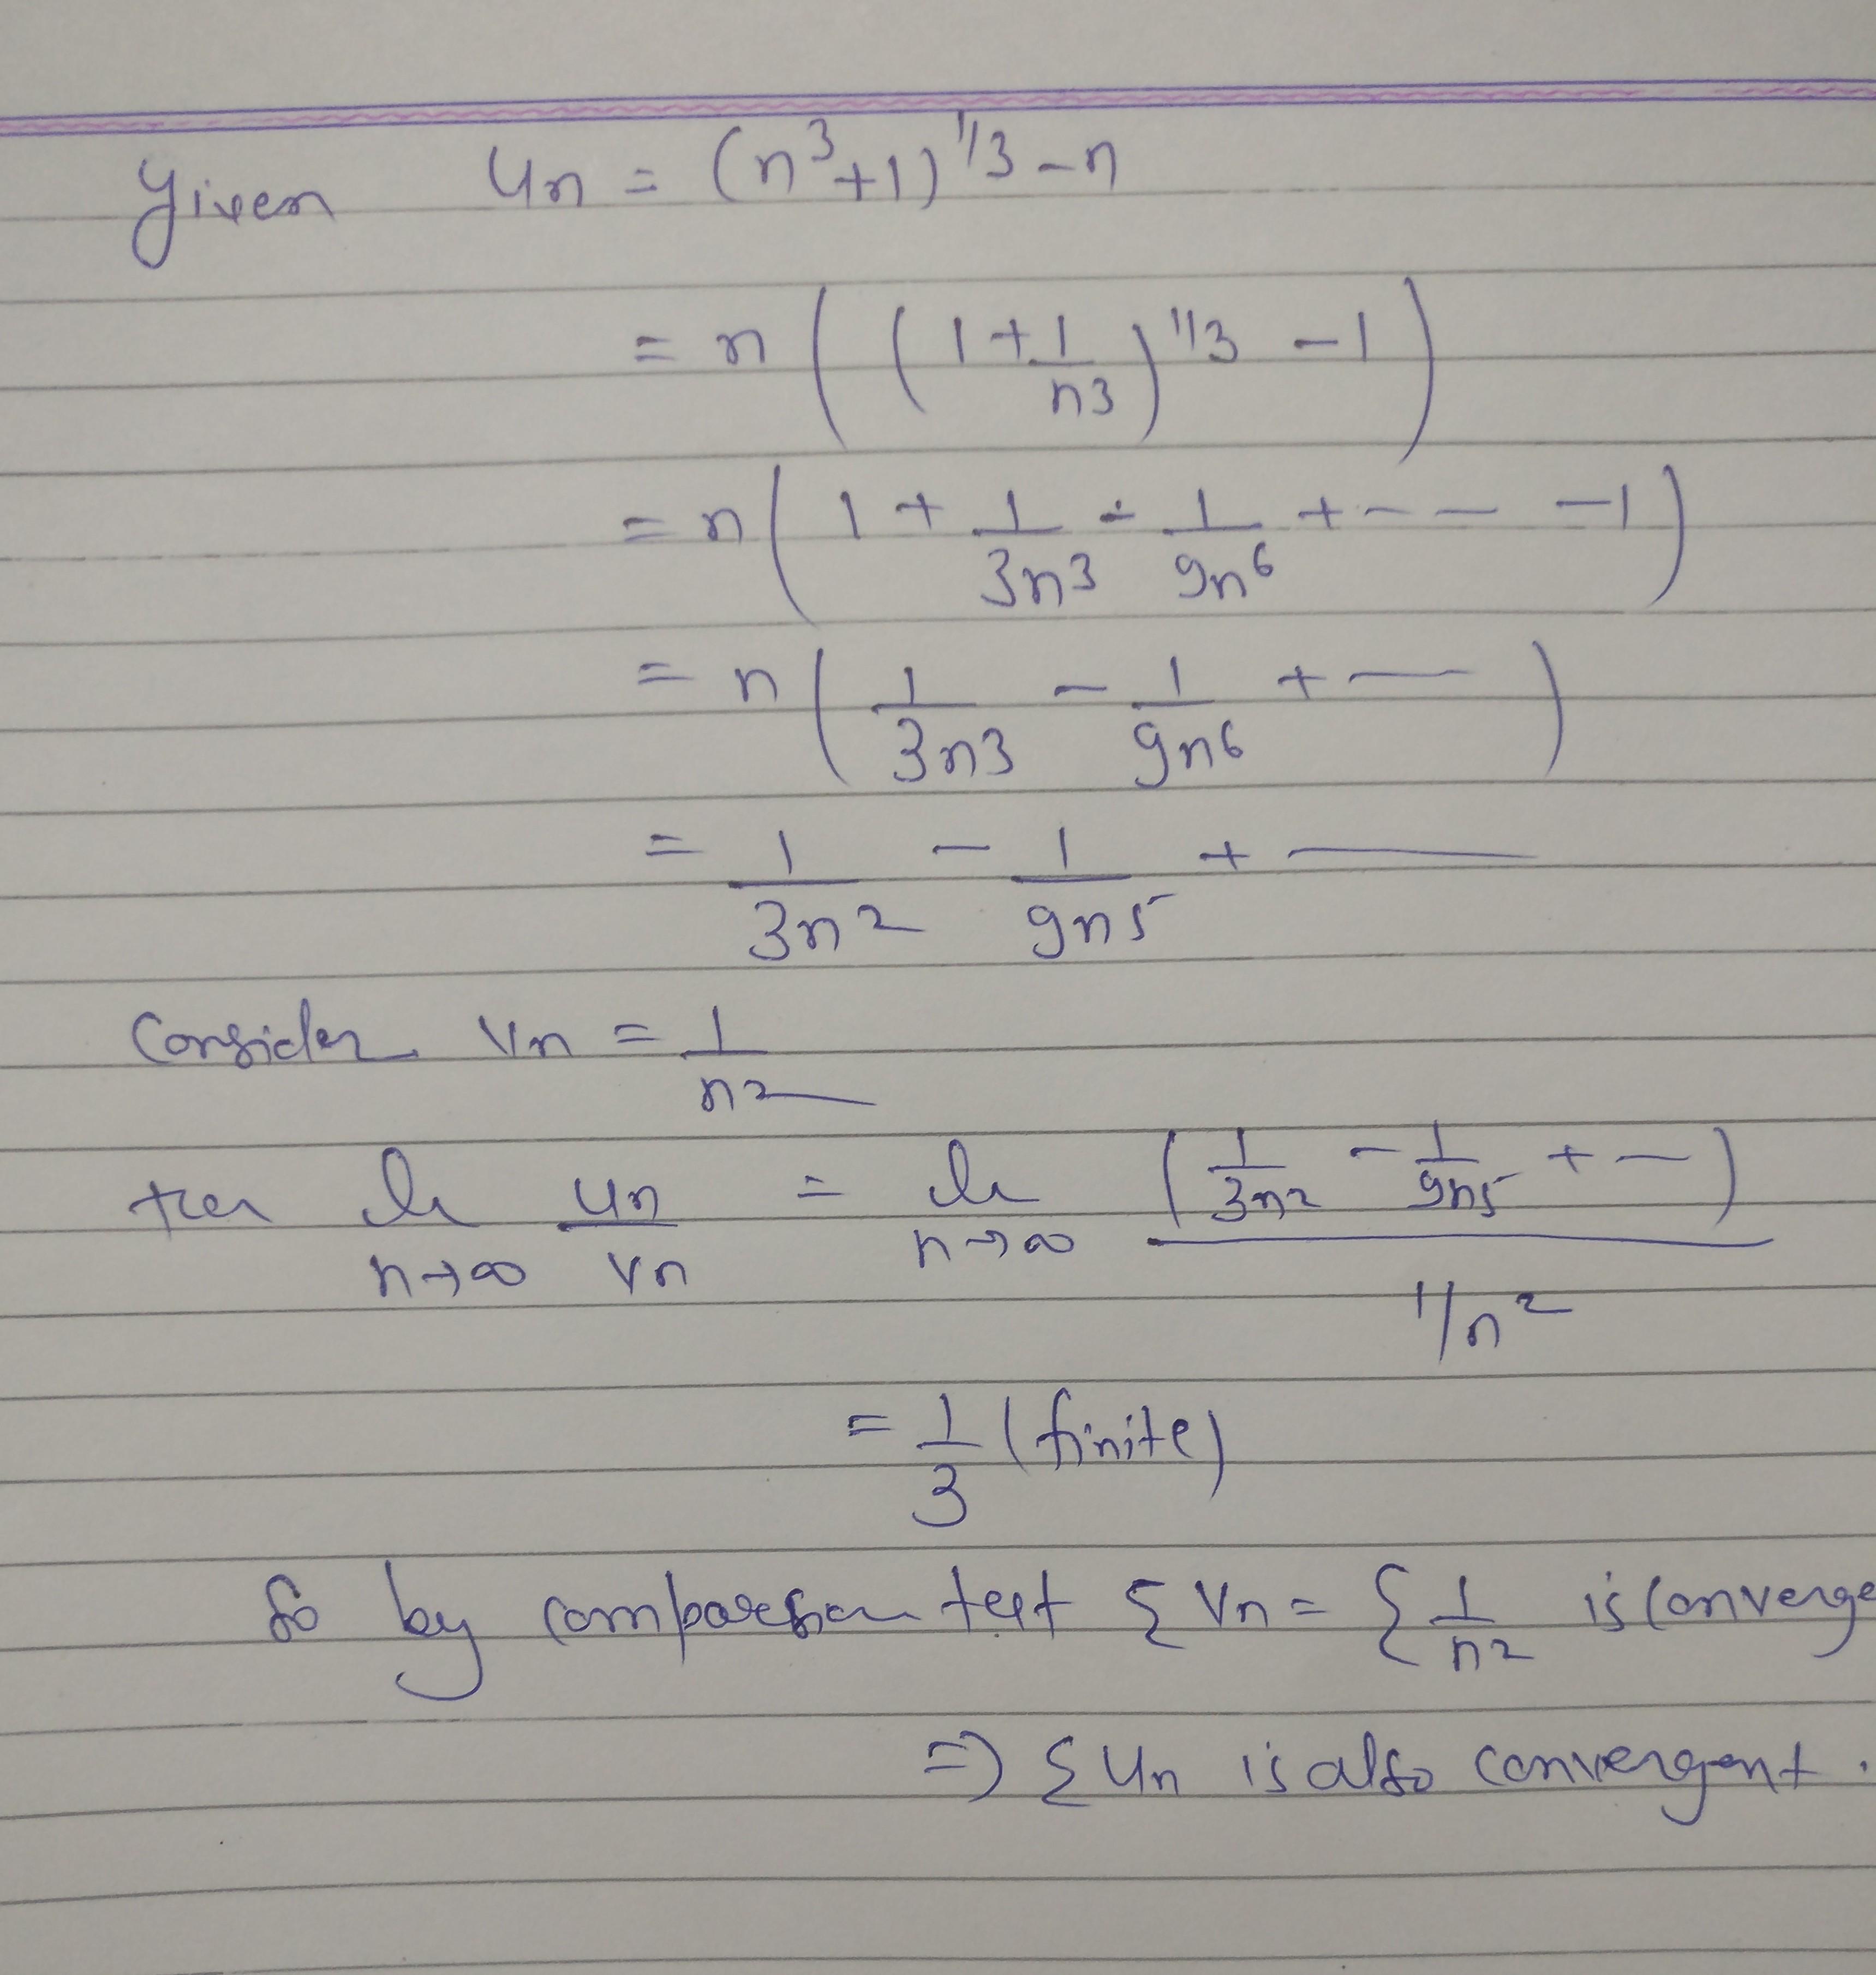 Given un = (n³+1)^1/3 - n
= n((1 + 1/n3)^1/3 - 1)
= n(1 + 1/3n3 - 1/9n6 + - - - 1)
= n(1/3n3 - 1/9n6 + —)
= 1/3n2 - 1/9n5 + —
Consider vn = 1/n2
lim n→∞ un/vn = lim n→∞ (1/3n2 - 1/9n5 + —) / 1/n²
= 1/3 (finite)
So by comparison test Σ Vn = Σ 1/n2 is converge
⇒ Σ Un is also convergent.